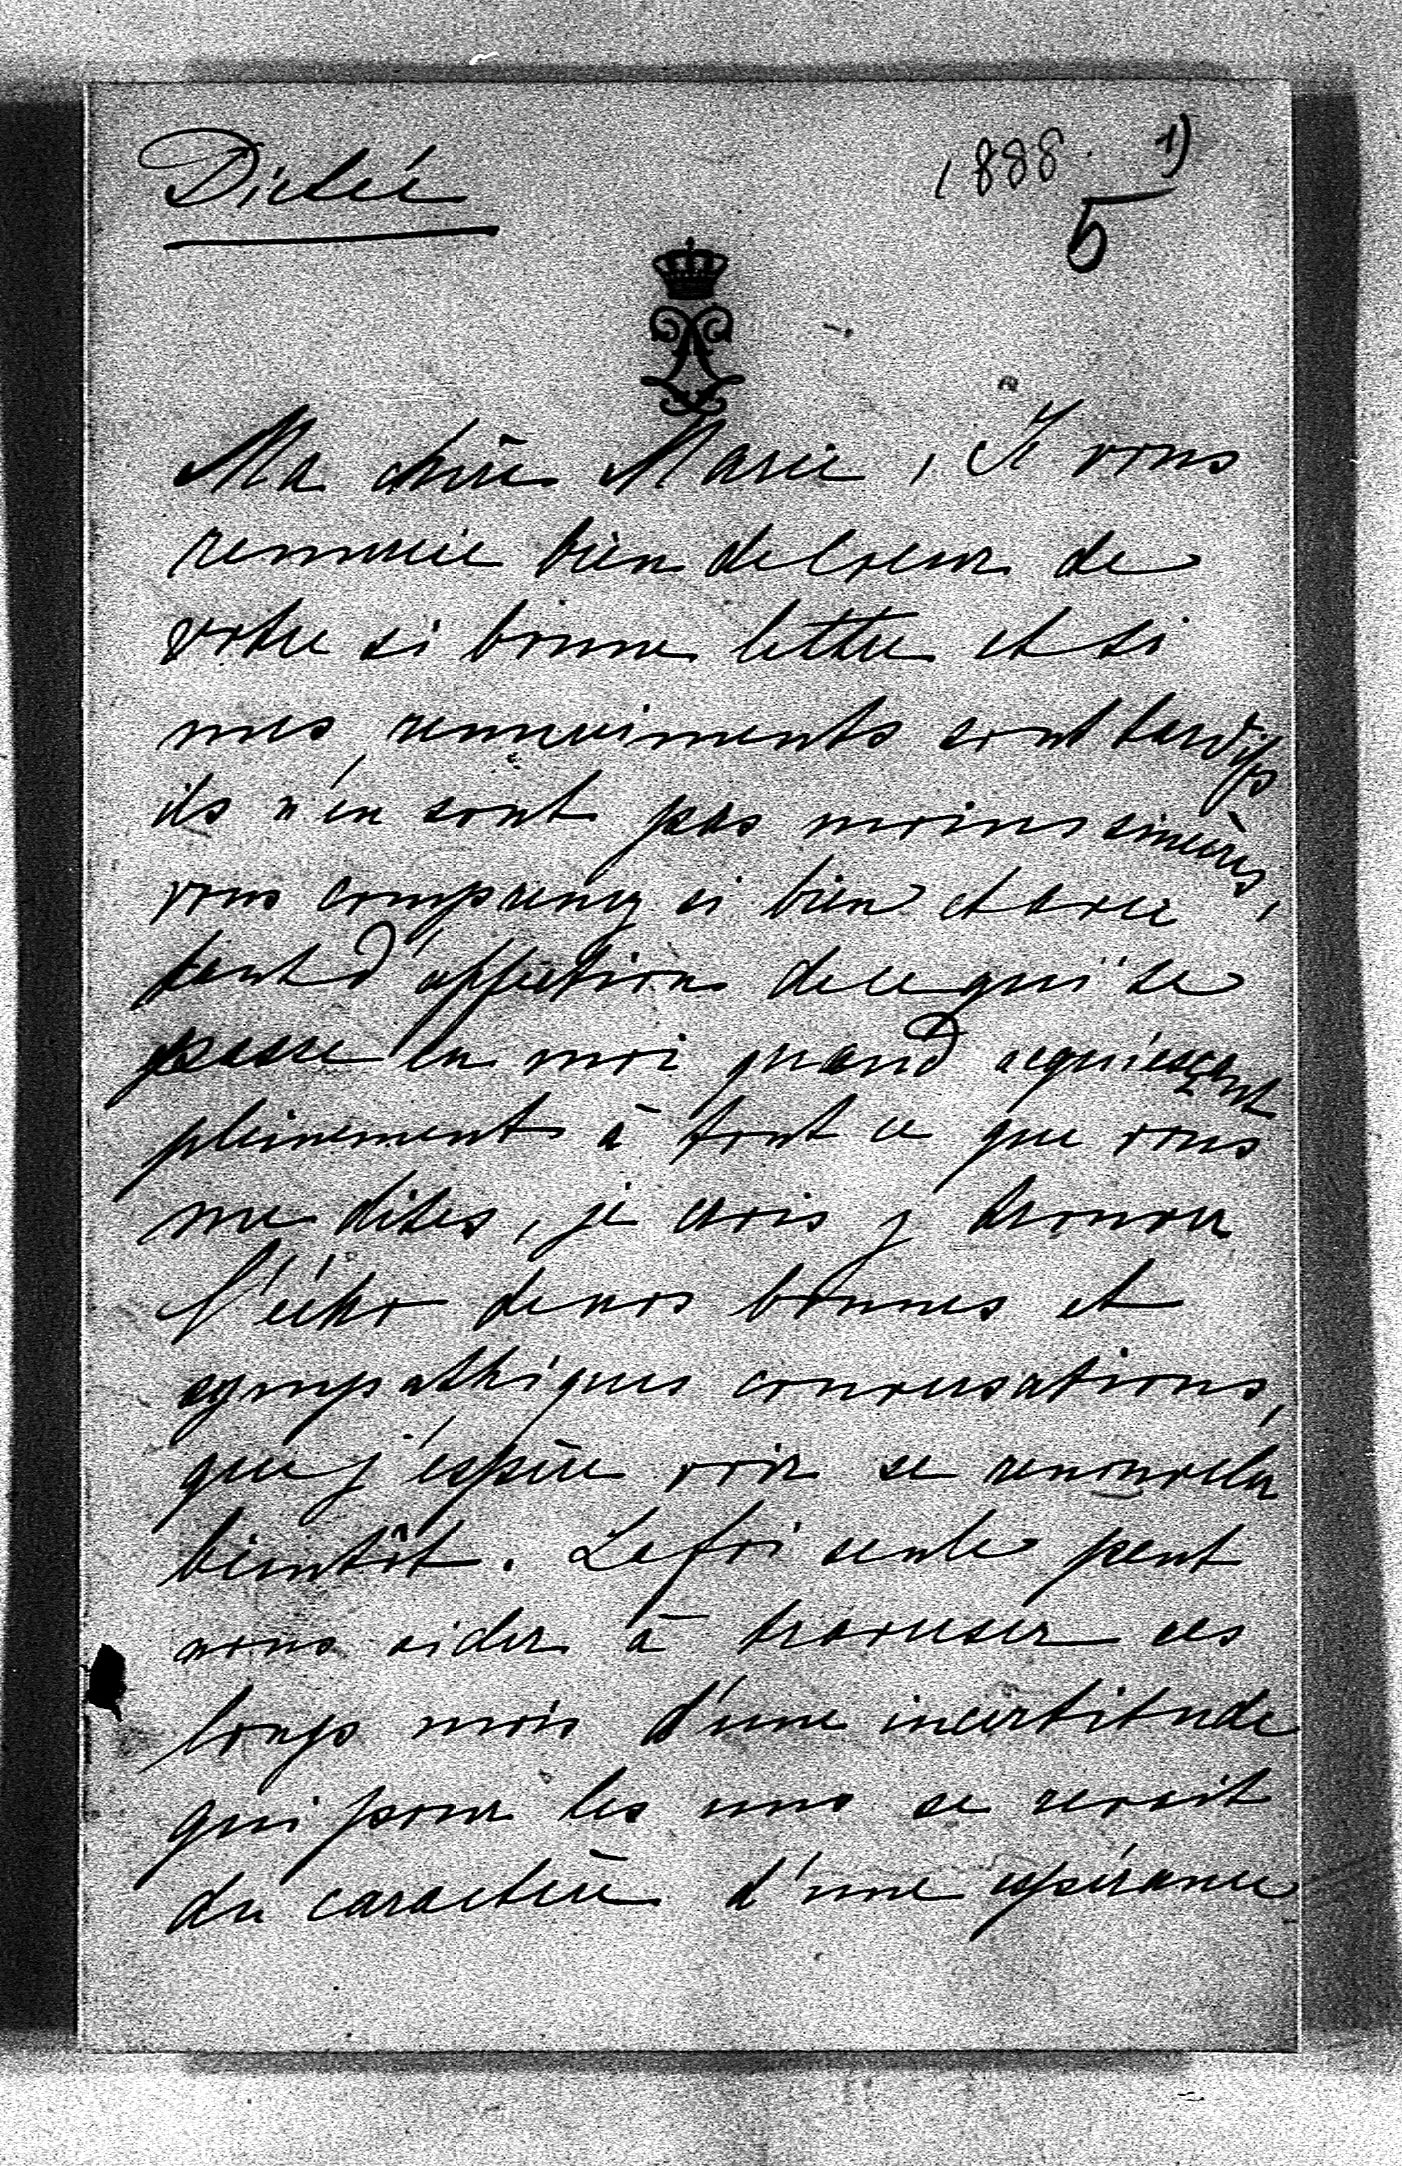 Dictée
1888. 1)
5
Ma chère Marie, Je vous
remercie bien de coeur de
votre si bonne lettre et si
mes remerciments sont tardifs
ils n'en sont pas moins sincères,
vous comprenez si bien et avec
tant d'affection de ce qui se
passe en moi quand acquiesçant
pleinement à tout ce que vous
me dites, je crois y trouver
l'écho de nos bonnes et
sympathiques conversations,
que j'espère voir se renouveler
bientôt. La foi seule peut
nous aider à traverser ces
longs mois d'une incertitude
qui pour les uns se revêt
du caractère d'une espérance